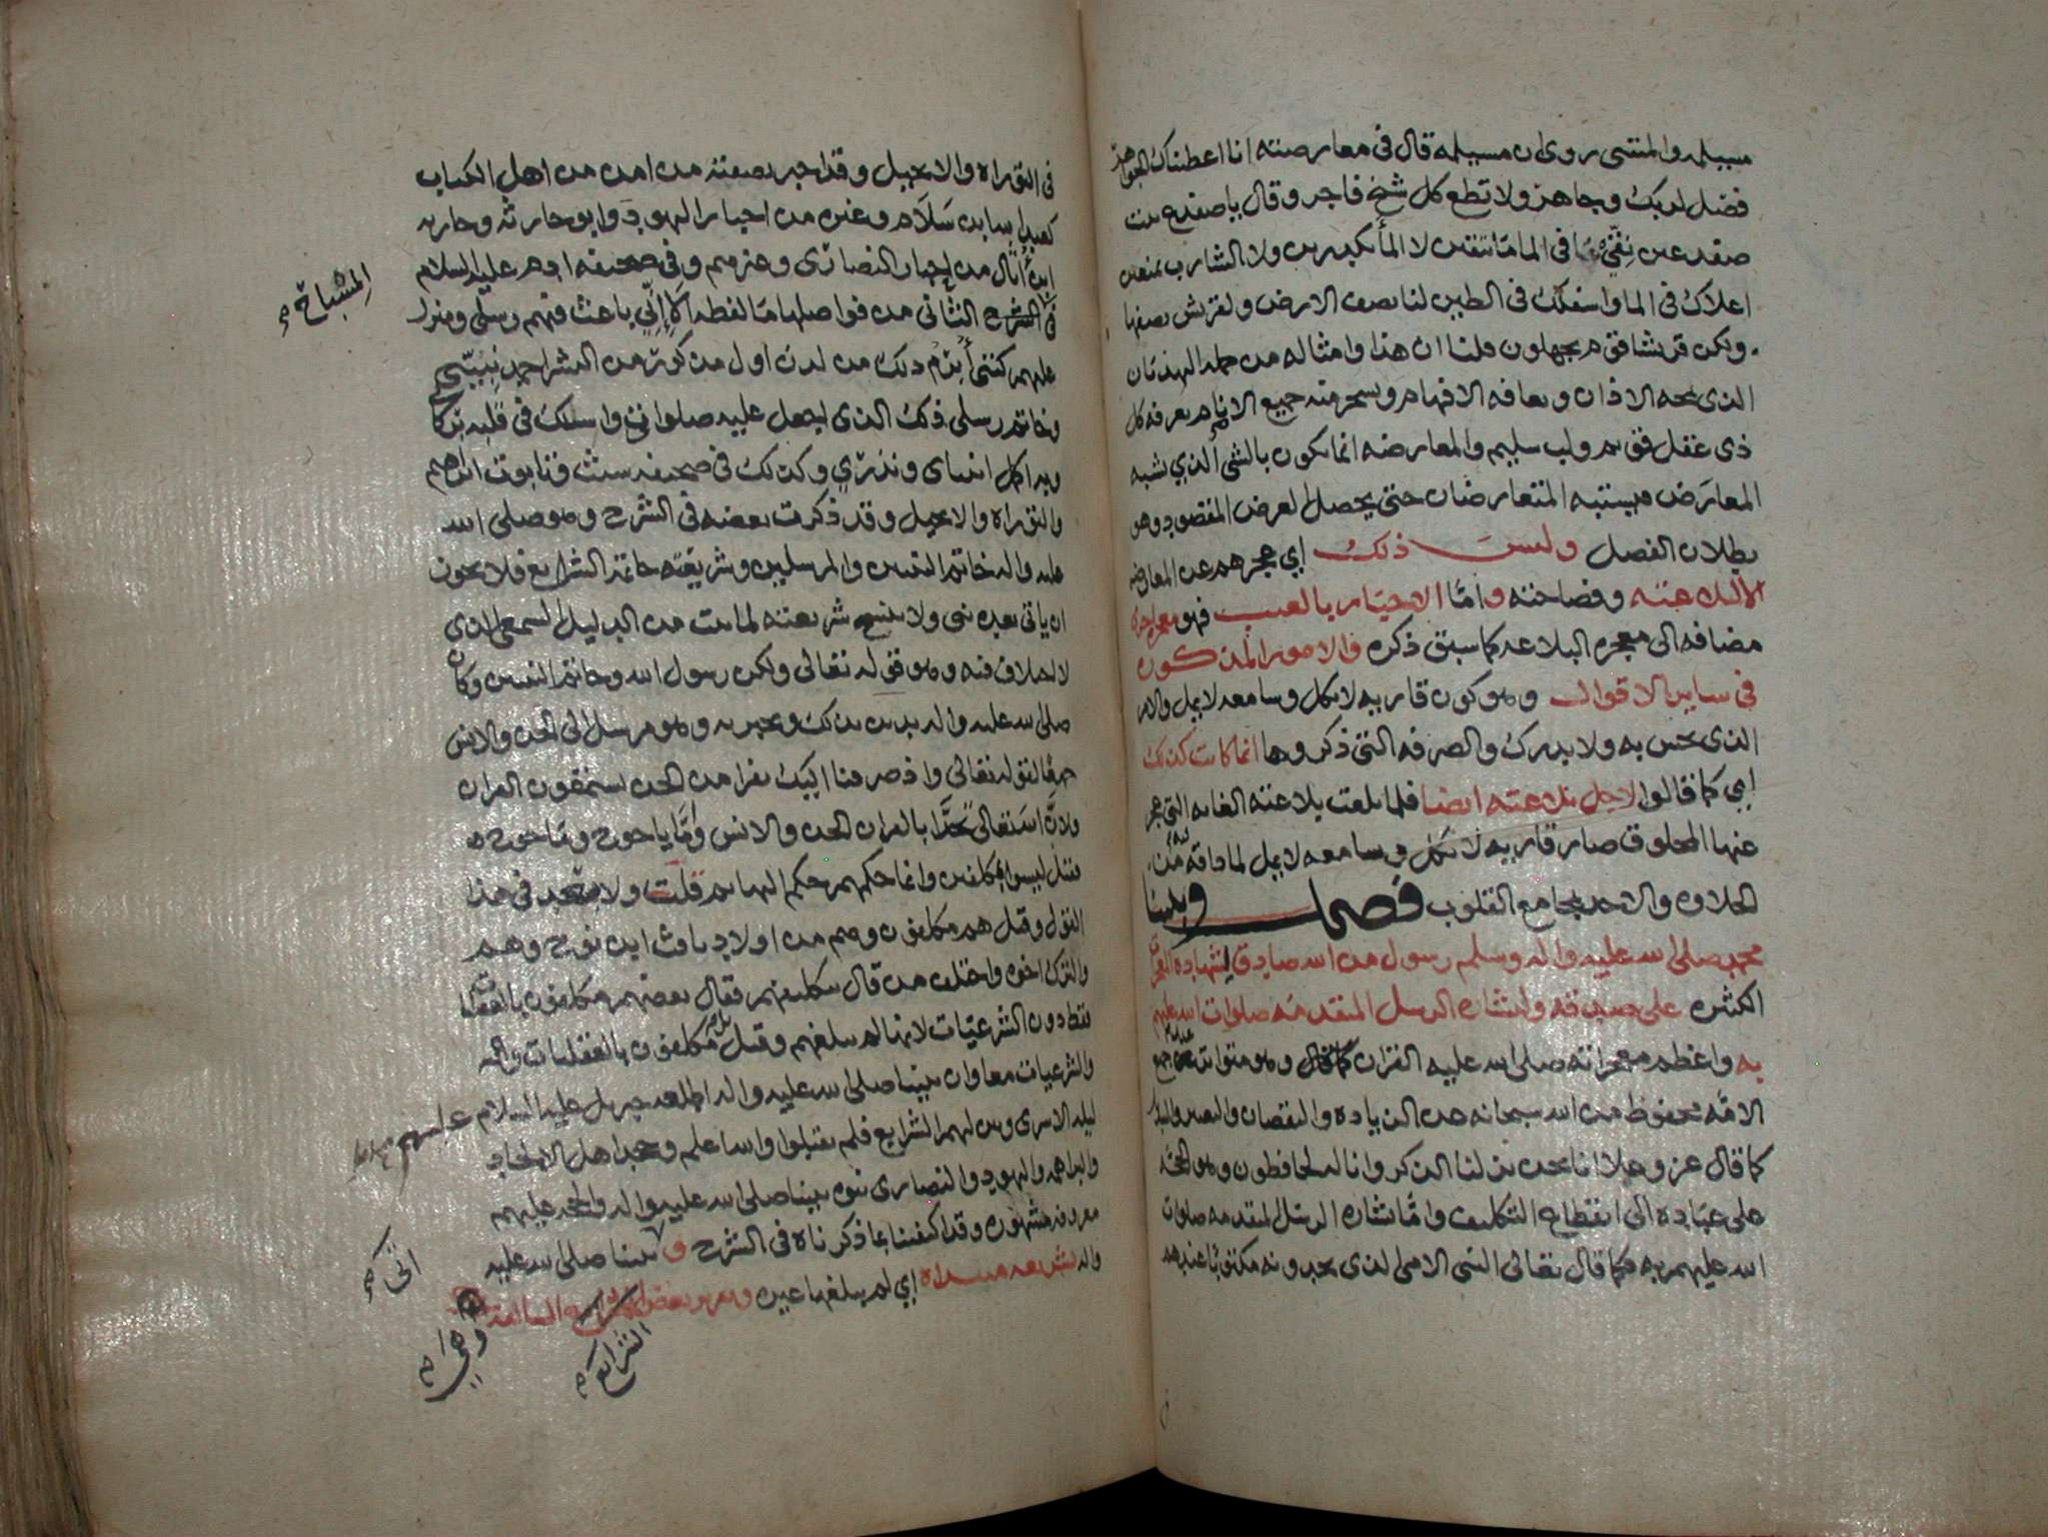 مسيلمه والمتنبي روي ان مسيلمه قال في معارضته انا اعطيناك الجواهر
فصل لربك وجاهر ولا تطع كل شيخ فاجر وقال يا ضفدع بنت
ضفدعين نقي في الما ما تنقين لا الما تكدرين ولا الشارب تمنعين
اعلاك في الما واسفلك في الطين لنا نصف الارض ولقريش نصفها
ولكن قريشا قوم يجهلون قلنا ان هذا وامثاله من جمله الهذيان
الذي تمجه الاذان وتعافه الافهام ويسخر منه جميع الانام يعرفه كل
ذي عقل قويم ولب سليم والمعارضه انما تكون بالشي الذي يشبه
المعارَض فيشتبه المتعارضان حتى يحصل الغرض المقصود وهو
بطلان الفصل وليس ذلك اي عجزهم عن المعارضه
الا لبلاغته وفصاحته واما الاخبار بالغيب فهو معجزه اخرى
مضافه الى معجزه البلاغه كما سبق ذكره والامور المذكوره
في ساير الاقوال وهو كون قاريه لا يكل وسامعه لا يمل والامر
الذي يحس به ولا يدرك والصرفه التي ذكروها انما كانت كذلك
اي كما قالوا لاجل بلاغته ايضا فلما بلغت بلاغته الغايه التي عجز
عنها المخلوق صار قاريه لا يكل وسامعه لا يمل لما ذاقه من
الحلاوه والاخذ بمجامع القلوب فصل ونبينا
محمد صلى الله عليه واله وسلم رسول من الله صادق لشهاده المعجزات
الكثيره على صدقه ولبشاره الرسل المتقدمه صلوات الله عليهم
به واعظم معجزاته صلى الله عليه القران كما قال وهو متواتر عند جميع
الامه محفوظ من الله سبحانه عن الزياده والنقصان والتغيير والتبديل
كما قال عز وجل انا نحن نزلنا الذكر وانا له لحافظون وهو الحجه
على عباده الى انقطاع التكليف واما بشاره الرسل المتقدمه صلوات
الله عليهم به فكما قال تعالى النبي الامي الذي يجدونه مكتوبا عندهم
في التوراه والانجيل وقد اخبر بصفته من امن من اهل الكتاب
كعبد الله بن سَلام وغيره من احبار اليهود وابو حارثه وحارثه
ابن أثال من احبار النصارى وغيرهم وفي صحيفه ادم عليه السلام
في الشرح الثاني من فواصلها ما لفظه الا إني باعث فيهم رسلي ومنزل
عليهم كتبي أبرم ذلك من لدن اول مذكور من البشر احمد نبيي
وخاتم رسلي ذلك الذي اجعل عليه صلواتي واسلك في قلبه بركاتي
وبه اكمل انبياي ونذري وكذلك في صحيفه شيث وتابوت ابراهيم
والتوراه والانجيل وقد ذكرت بعضه في الشرح وهو صلى الله
عليه واله خاتم النبيين والمرسلين وشريعته خاتمة الشرايع فلا يجوز
ان ياتي بعده نبي ولا ينسخ شريعته لما ثبت من الدليل السمعي الذي
لا خلاف فيه وهو قوله تعالى ولكن رسول الله وخاتم النبيين وكان
صلى الله عليه واله يدين بذلك ويخبر به وهو مرسل الى الجن والانس
جميعا لقوله تعالى واذ صرفنا اليك نفرا من الجن يستمعون القران
ولان الله تعالى تحدا بالقران الجن والانس واما ياجوج وماجوج
فقيل ليسوا بمكلفين وانما حكمهم حكم البهايم قلت ولا في هذا
القول وقيل هم مكلفون وهم من اولاد يافث ابن نوح وهم
والترك اخوه واختلف من قال بتكليفهم فقال بعضهم مكلفون بالعقليات
فقط دون الشرعيات لانها لم تبلغهم وقيل بل مكلفون بالعقليات
والشرعيات معا وان نبينا صلى الله عليه واله اطلعه جبريل عليه السلام عليهم
ليله الاسرى وبين لهم الشرايع فلم يقبلوا والله اعلم وجحد اهل الالحاد
والبراهمه واليهود والنصارى نبوه نبينا صلى الله عليه واله والحجه عليهم
معروفه مشهوره وقد اكتفينا بما ذكرناه في الشرح ونبينا صلى الله عليه
واله بشريعه مبتداه اي لم يبلغها غيره وبعض السالفة
المشباح
اتى
وهي
الشرايع